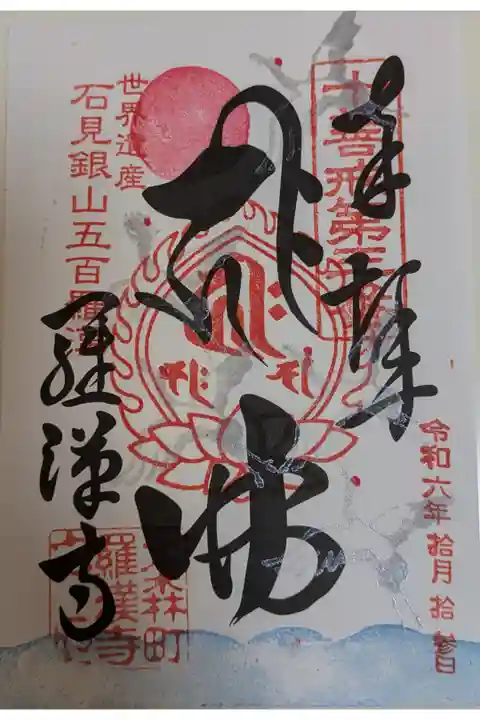 奉拝
十善戒第
令和六年 拾月 拾参日
佛
世界遺産
石見銀山五百羅漢
羅漢寺
大森町
羅漢寺